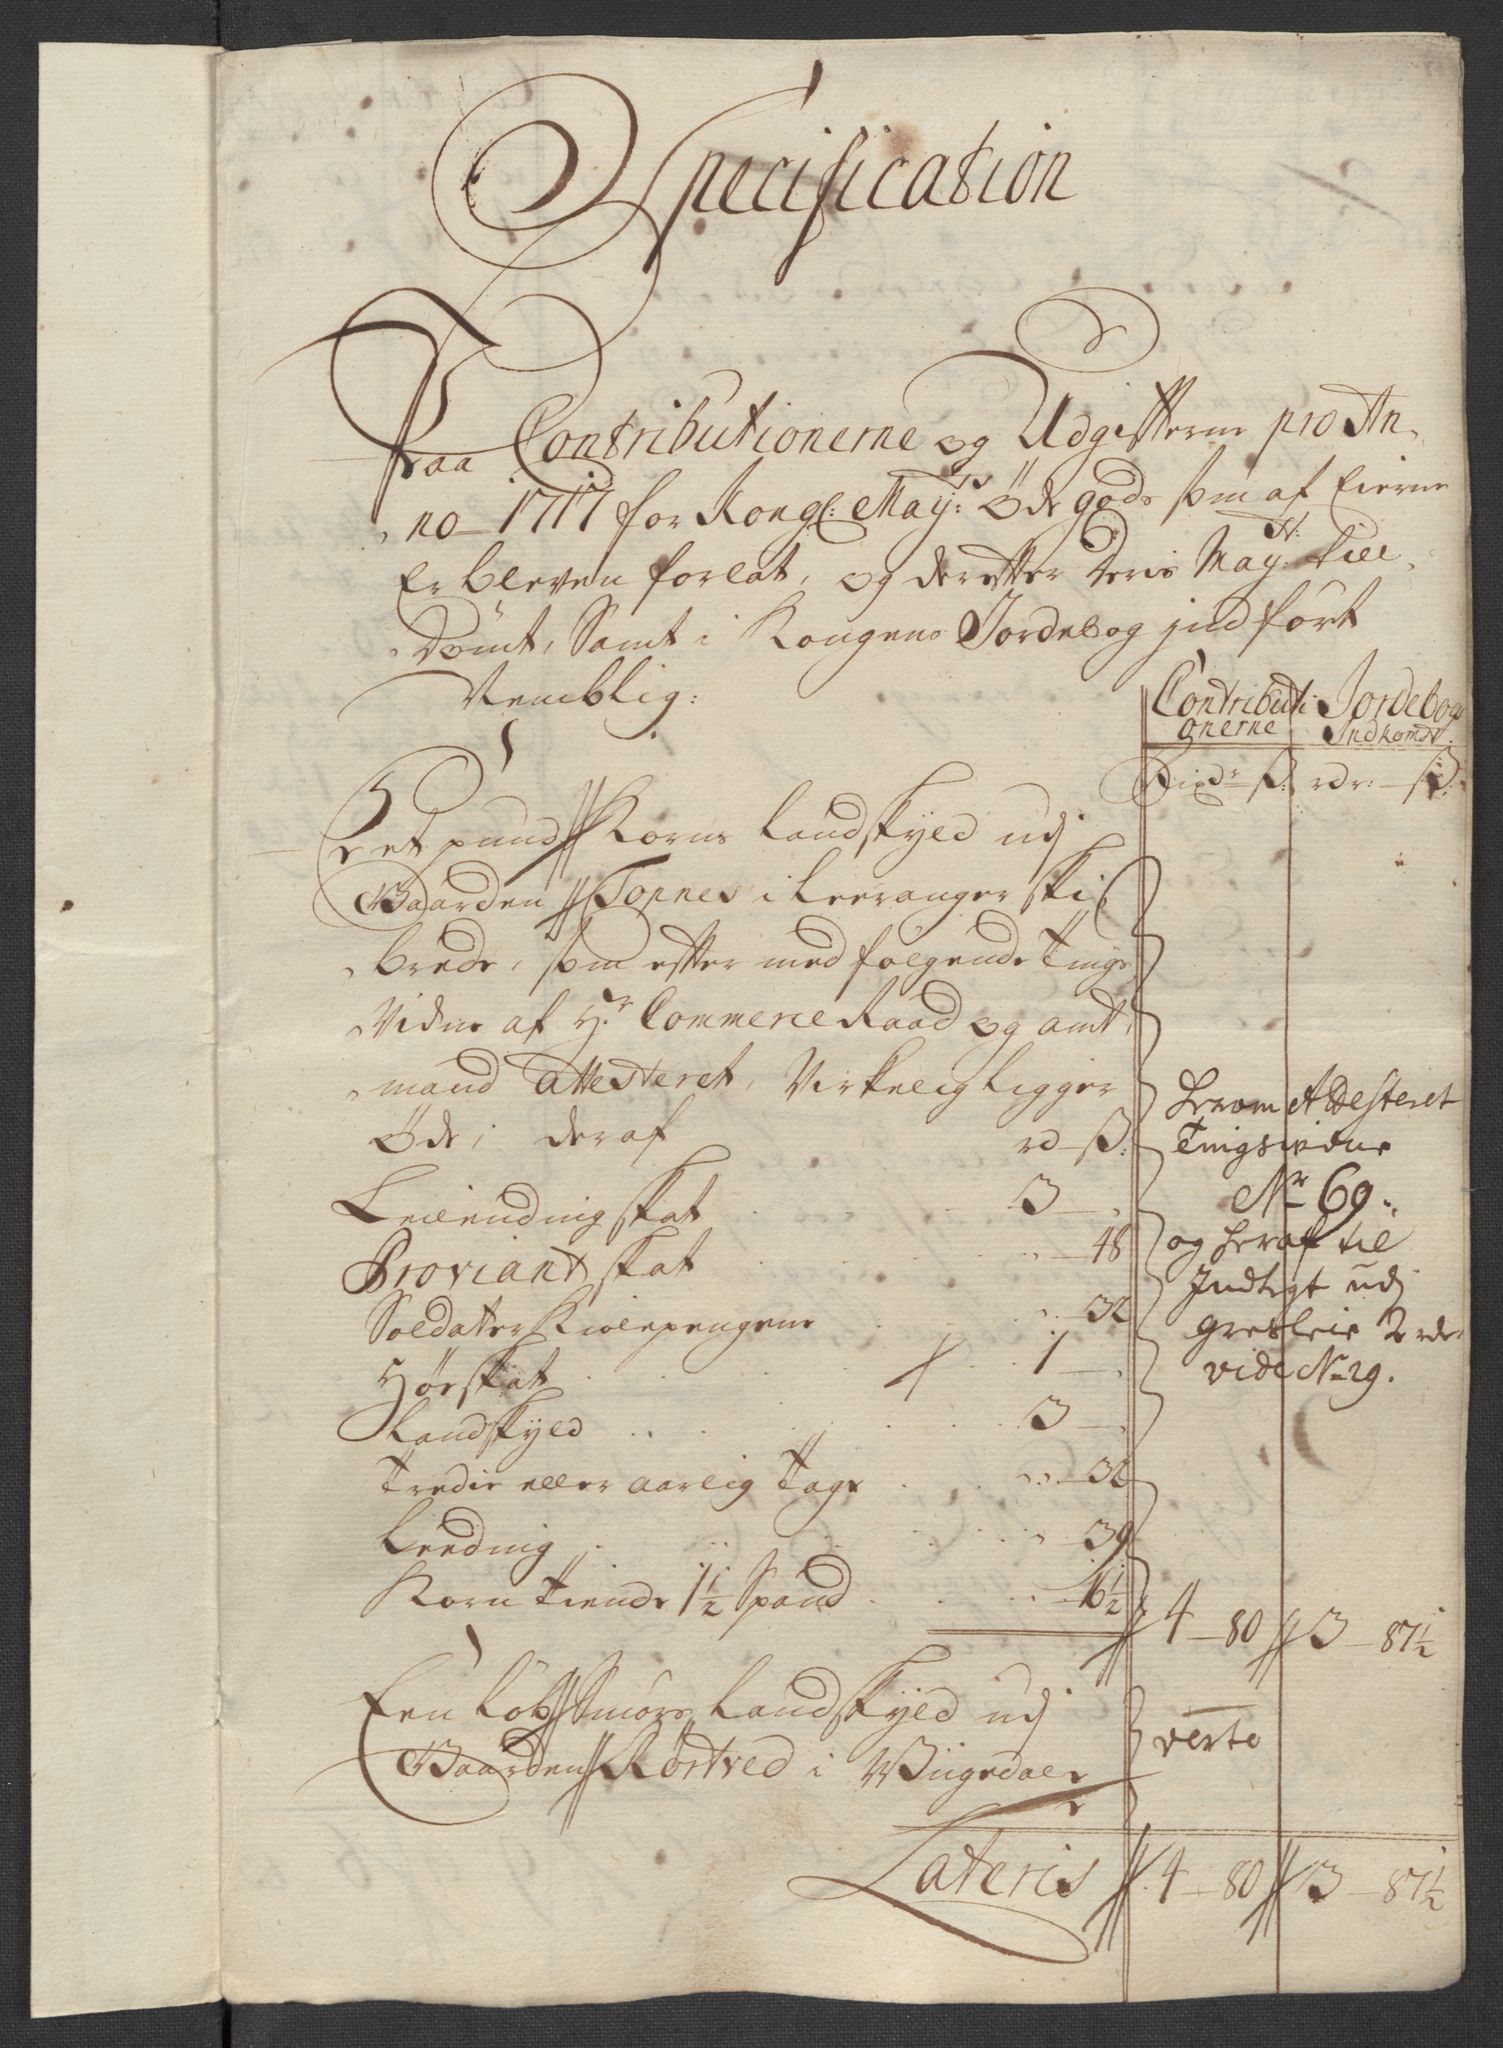 Specification
Paa Contributionerne og Udgifterne pro An,
,no 1717 for Kongl: May:ts Öde gods som af Eierne
Er bleven forlat, og derefter deris May:tt till,
,Dømt, Samt i Kongens Jordebog jndført
Nemblig:
Contributi Jordebog
onerne Indkomst
Rixdr ß: rdr: ß:
Et pund Korns Landskyld udj
Gaarden Tonnes i Leeranger Ski
,brede, som efter medfølgende Tings
,Vidne af Hr. Commerce Raad og amt,
,mand attesteret, Virkelig Ligger
Öde, deraf rd ß:
Leilendings skat 3 —
Proviant skat 48
Soldater Kiolepengene 32
Hør skat 1 —
Landskyld 3 —
Tredie eller aarlig Tage 32
Leeding 39
Korn Tiende 1½ Spand 16½
4 — 80 3 — 87½
herom Attesteret
Tingsvidne
No 69.
og heraf til
Indtegt udj
græsleie 2 rdr
vide No 29.
Een Løb Smørs Landskyld udj
Gaarden Rørtved i Biigedaler
verte
Lateris 4 — 80 3 — 87½